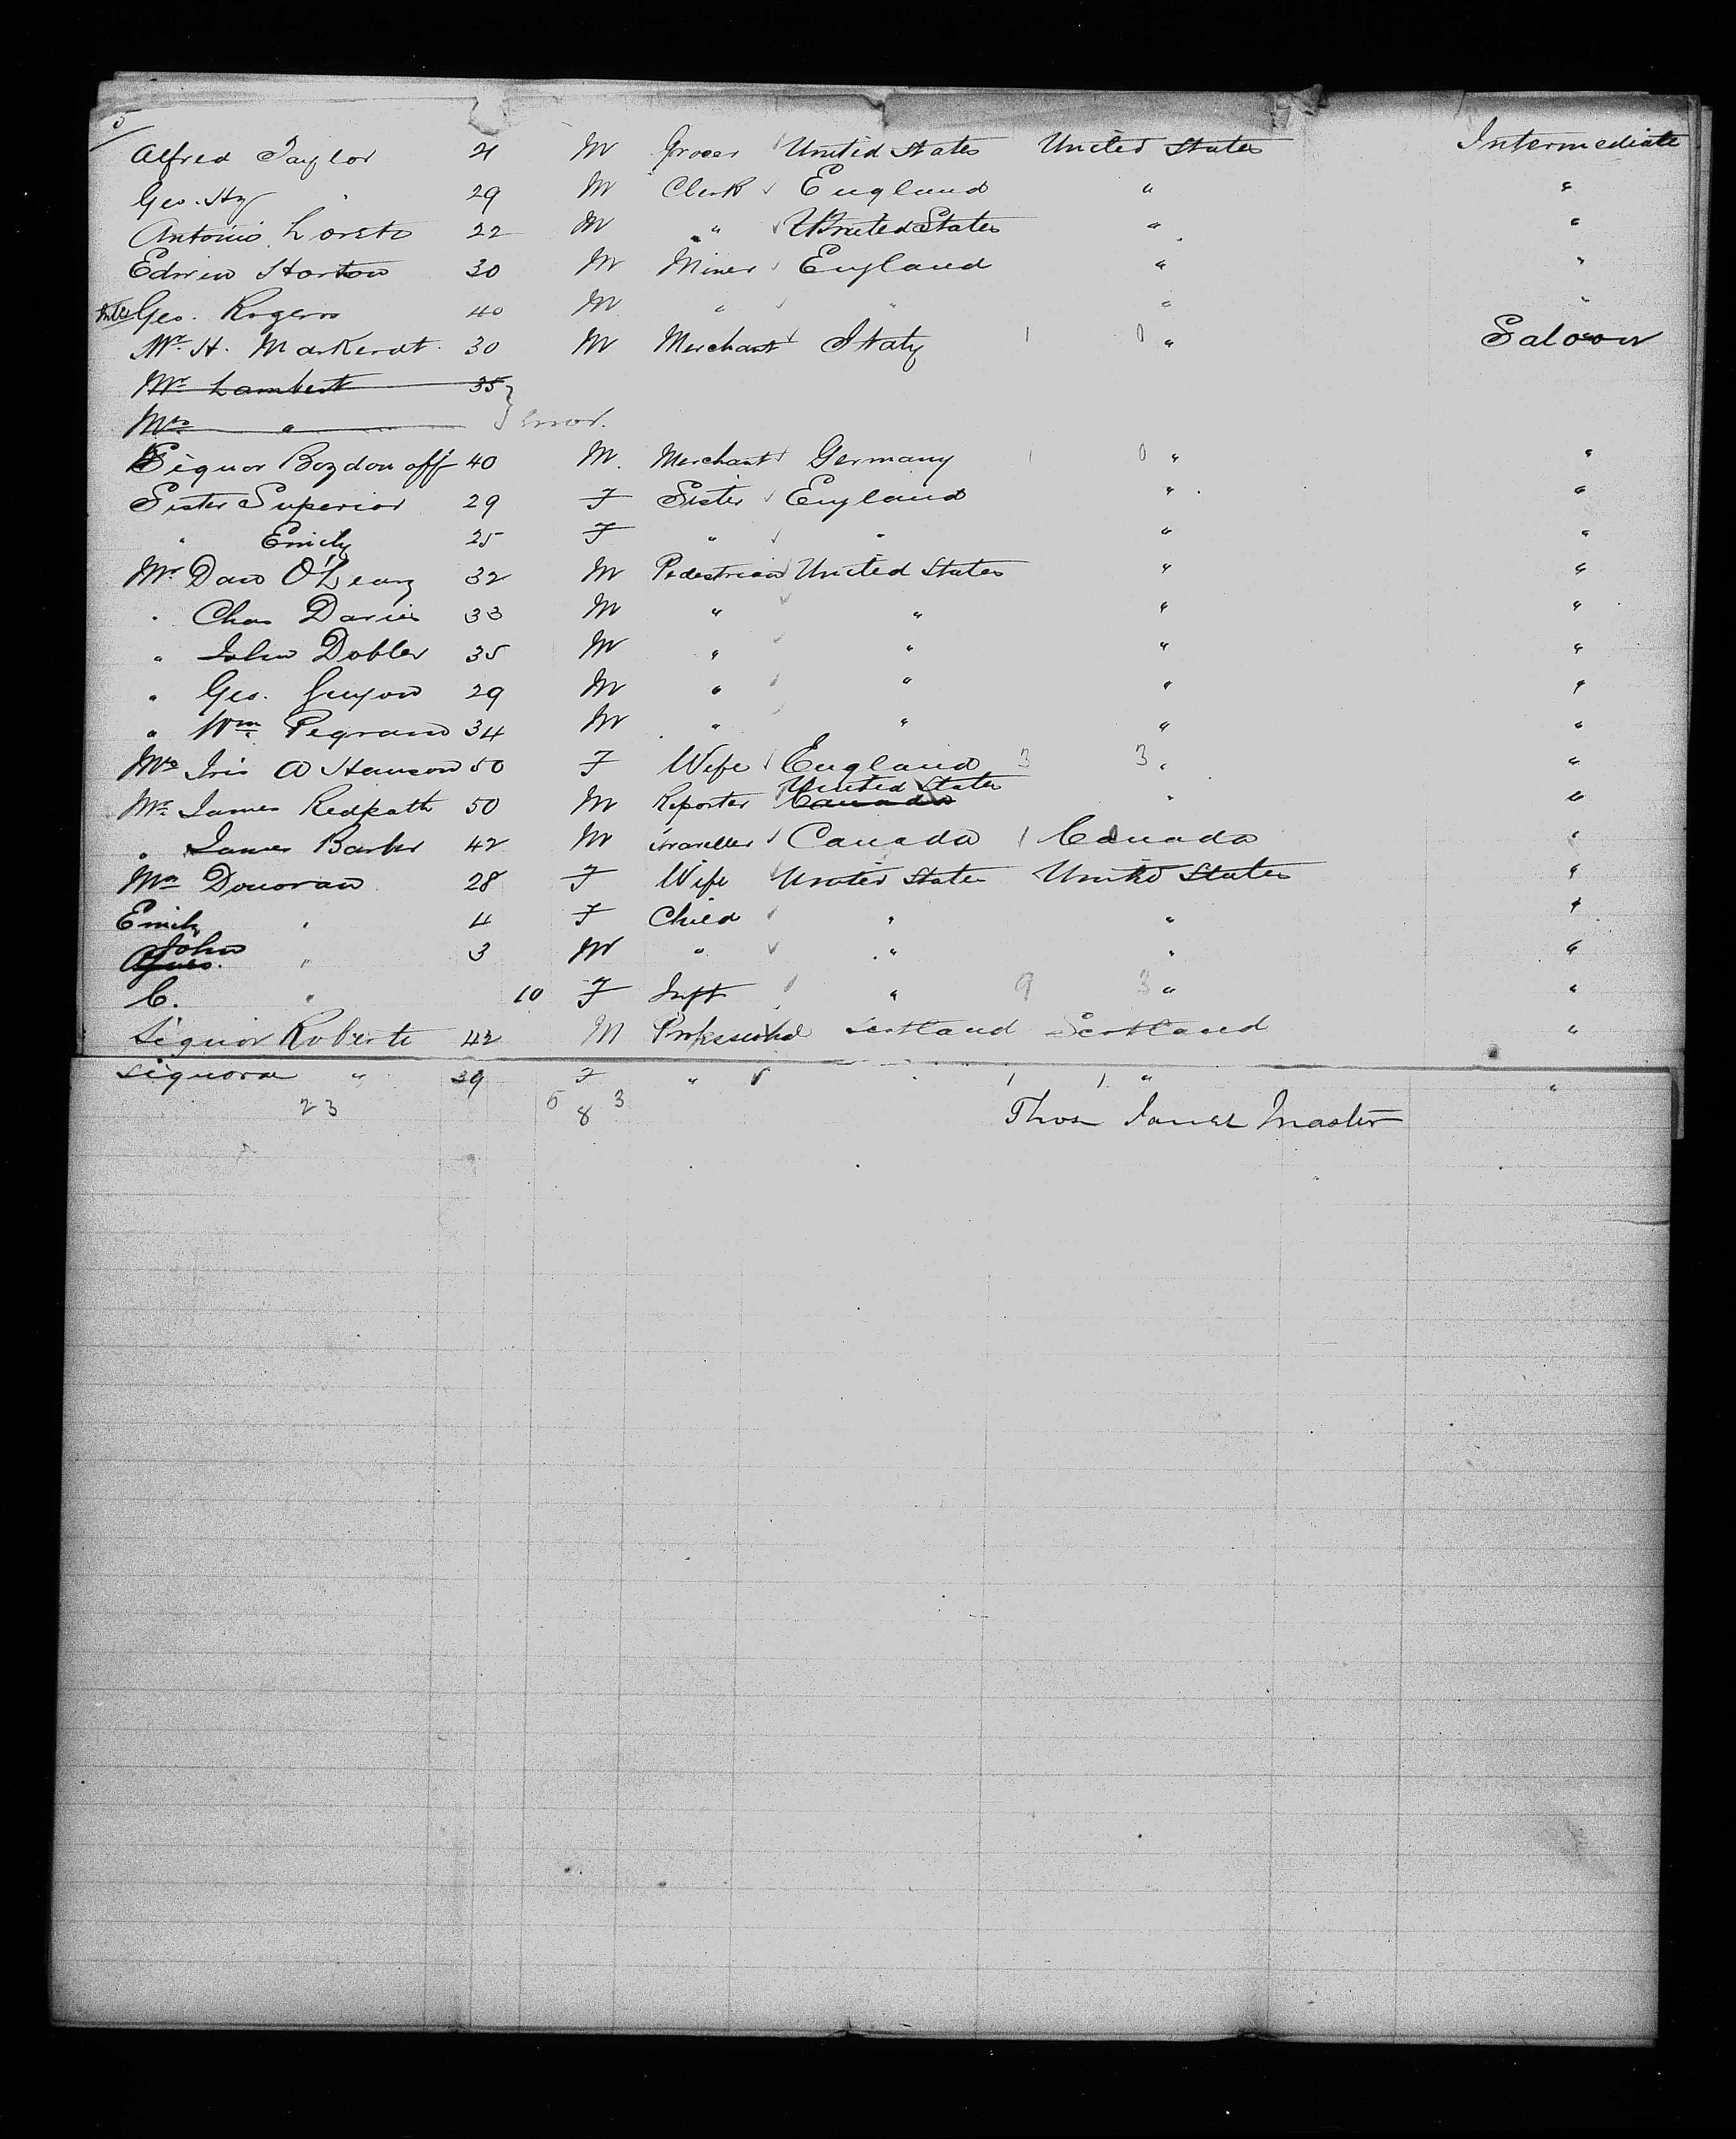 5
Alfred Taylor 21 M Grocer United States United States Intermediate
Geo. Hy " 29 M Clerk England " "
Antonio Loreto 22 M " United States " "
Edwin Horton 30 M Miner England " "
Geo. Rogers 40 M " " " "
Mr. H. Markendt 30 M Merchant Italy 1 0 " Saloon
Mr. Lambert 35
Mrs. " Error.
Signor Bozdonoff 40 M. Merchant Germany 1 0 " "
Sister Superior 29 F Sister England " "
" Emily 25 F " " " "
Mr Dan O'Leary 32 M Pedestrian United States " "
" Chas Davies 33 M " " " "
" John Dobler 35 M " " " "
" Geo. Guyon 29 M " " " "
" Wm Pegram 34 M " " " "
Mrs Iris A Henson 50 F Wife England 3 3 " "
Mr. James Redpath 50 M Reporter United States Canada " "
" James Barber 42 M Traveller Canada 1 Canada "
Mrs Donovan 28 F Wife United States United States "
Emily " 4 F Child " " "
John Agnes. " 3 M " " " "
C. " 10 F Inft " 9 3 " "
Signor Roberti 42 M Professional Scotland Scotland "
Signora " 39 F " 1 1 " "
23 5 8 3 Thos Jones Master